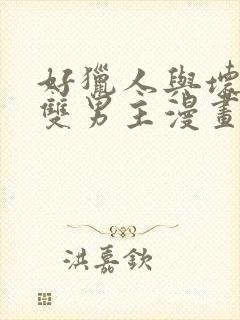 好獵人與壞
雙男主漫畫
洪嘉欽